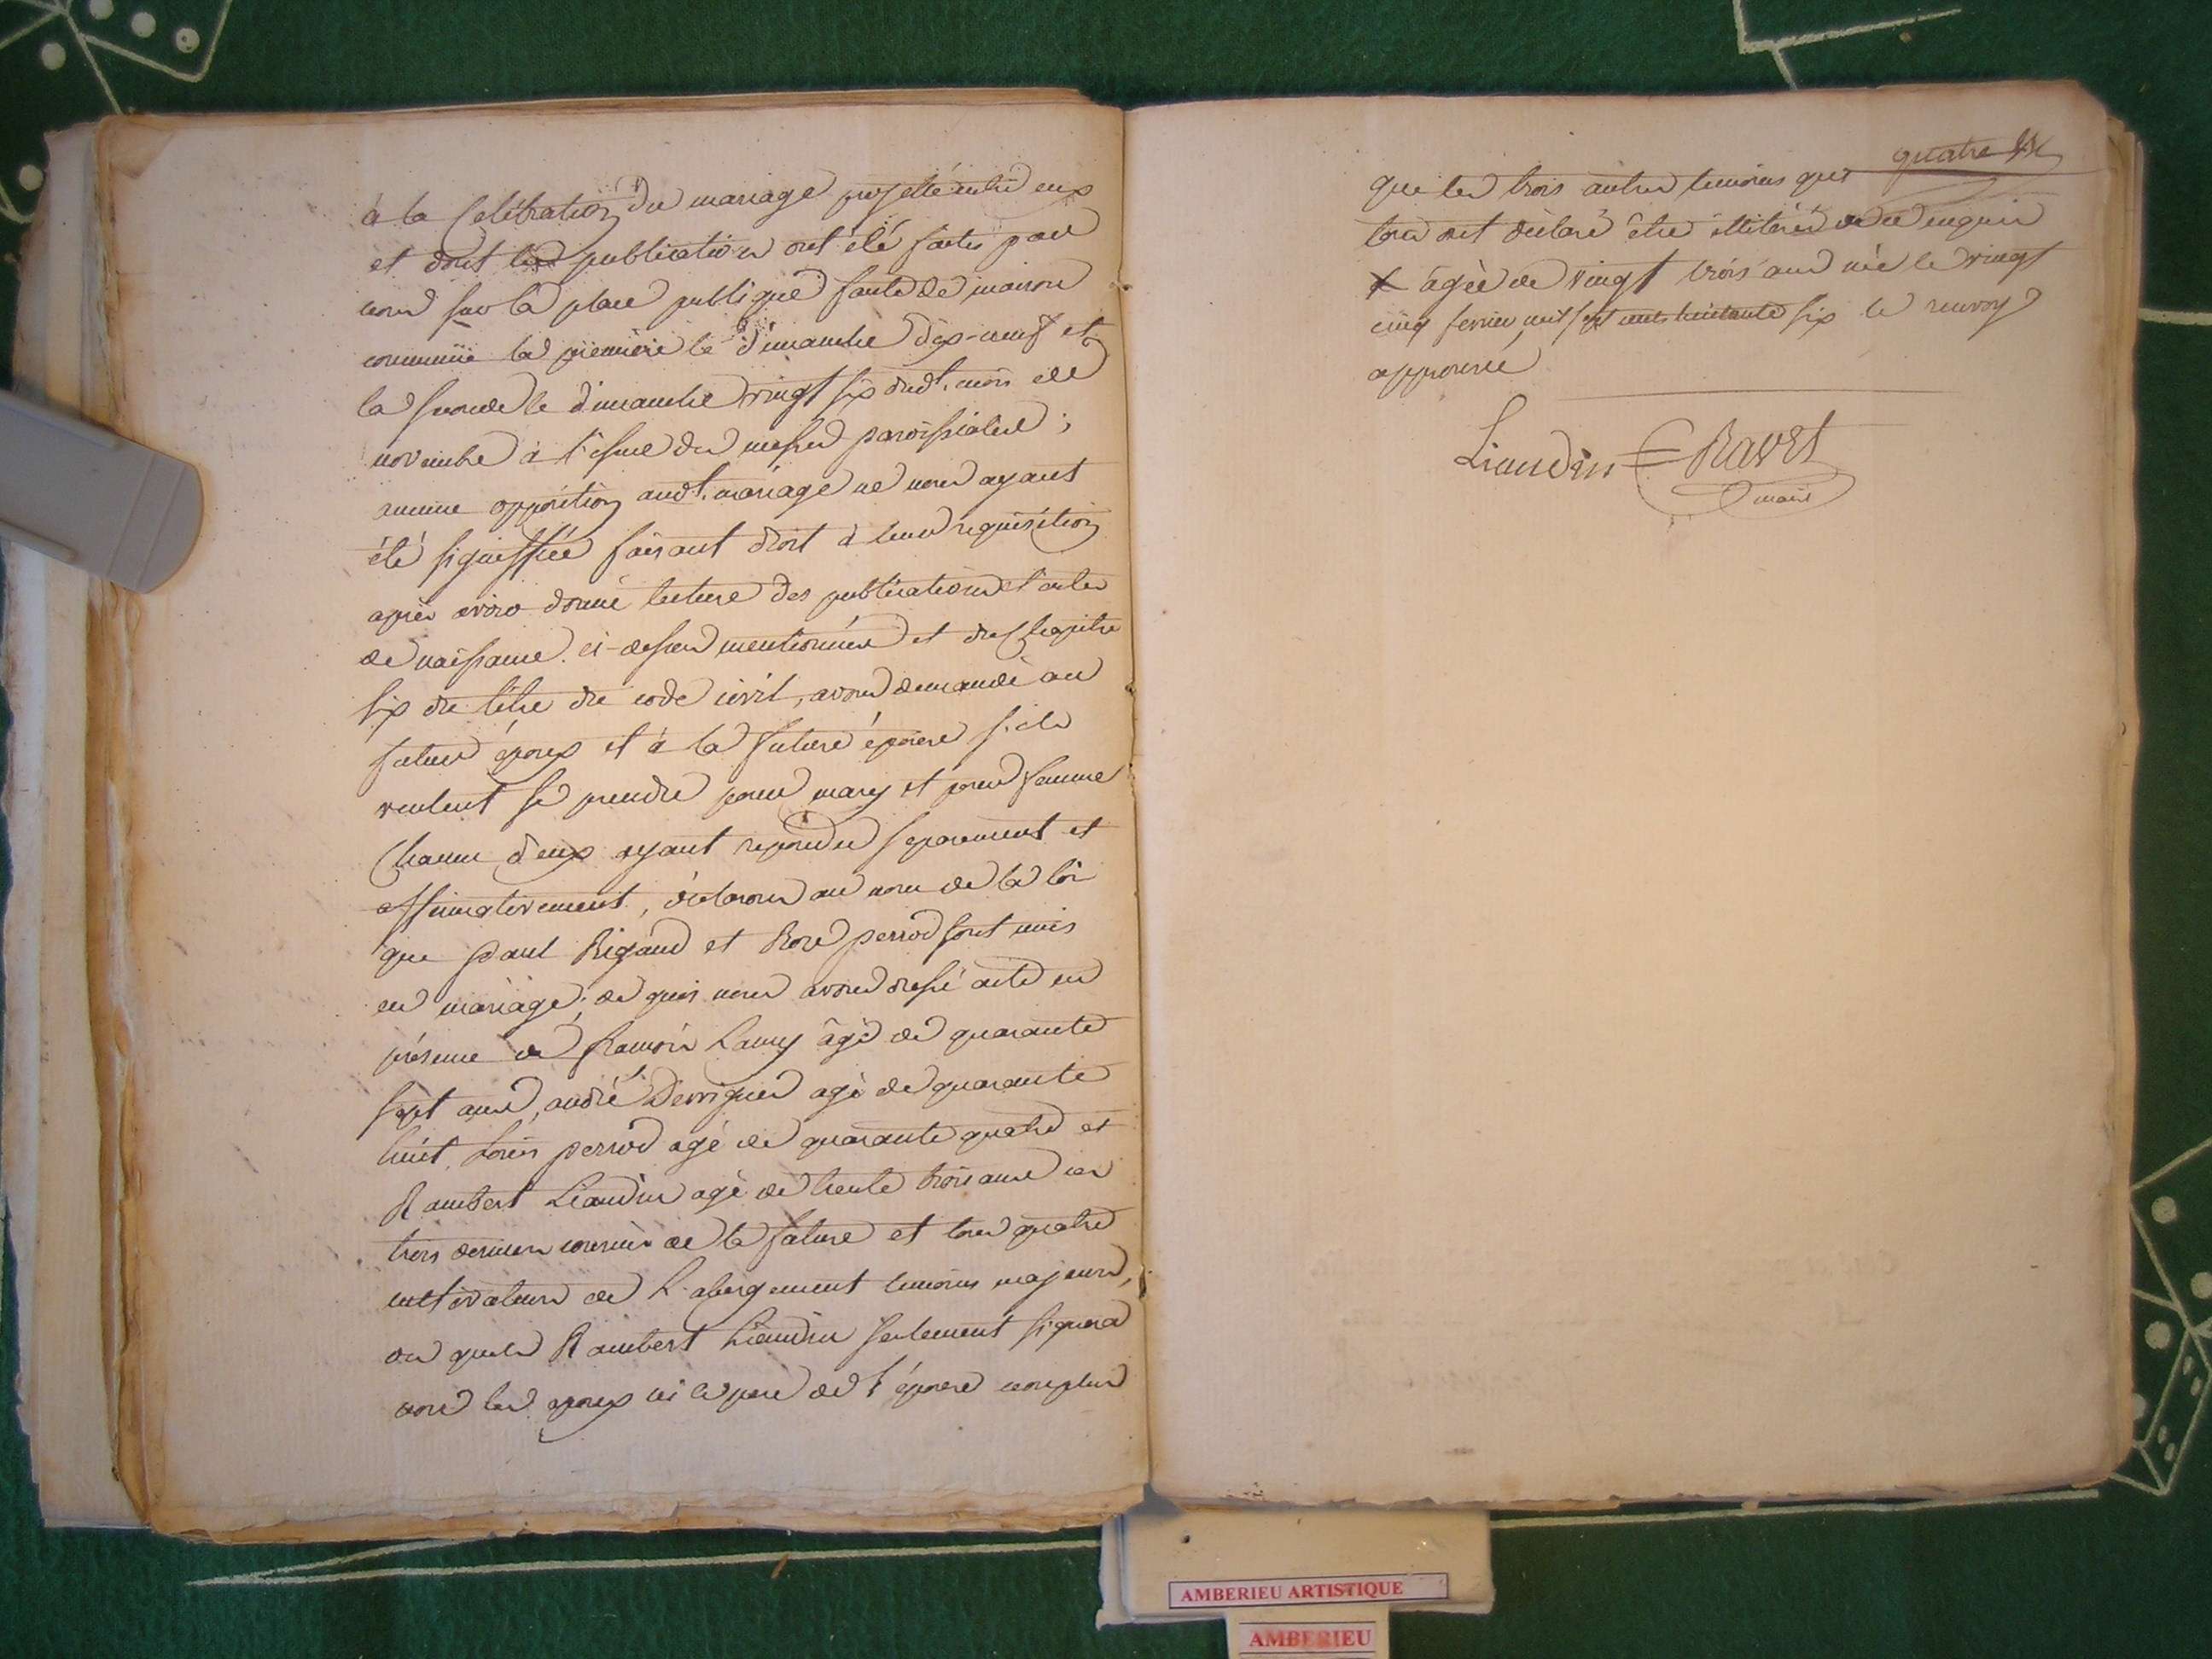 à la Celébration du mariage projetté entre eux
et dont les publications ont été faites par
nous sur la place publique faute de maison
commune la première le dimanche dix-neuf et
la seconde le dimanche vingt six dudt. mois de
novembre à l'issue des messes paroissiales ;
aucune opposition audt. mariage ne nous ayant
été signiffiée faisant droit à leur requisition
après avoir donné lecture des publications et actes
de naissance ci-dessus mentionnés et du Chapitre
six du titre du code civil, avons demandé au
futur époux et à la future épouse s'ils
veulent se prendre pour mary et pour femme
Chacun d'eux ayant repondu separement et
affirmativement, déclarons au nom de la loi
que paul Rigaud et Rose perrod sont unis
en mariage ; de quoi nous avons dressé acte en
présence de françois Lamy âgé de quarante
sept ans, andré Dervigner agé de quarante
huit, Louis perrod agé de quarante quatre et
Rambert Liaudin agé de trente trois ans ces
trois derniers cousins de la future et tous quatre
cultivateurs de L'abergement temoins majeurs,
des quels Rambert Liaudin seulement signera
non les epoux ni le père de l'épouse non plus
quatre
que les trois autres temoins qui
tous ont déclaré être illiterés de ce enquis
x agée de vingt trois ans née le vingt
cinq fevrier mil sept cents huitante six le renvoy
approuvé
Liaudin Ravet
maire
AMBERIEU ARTISTIQUE
AMBERIEU